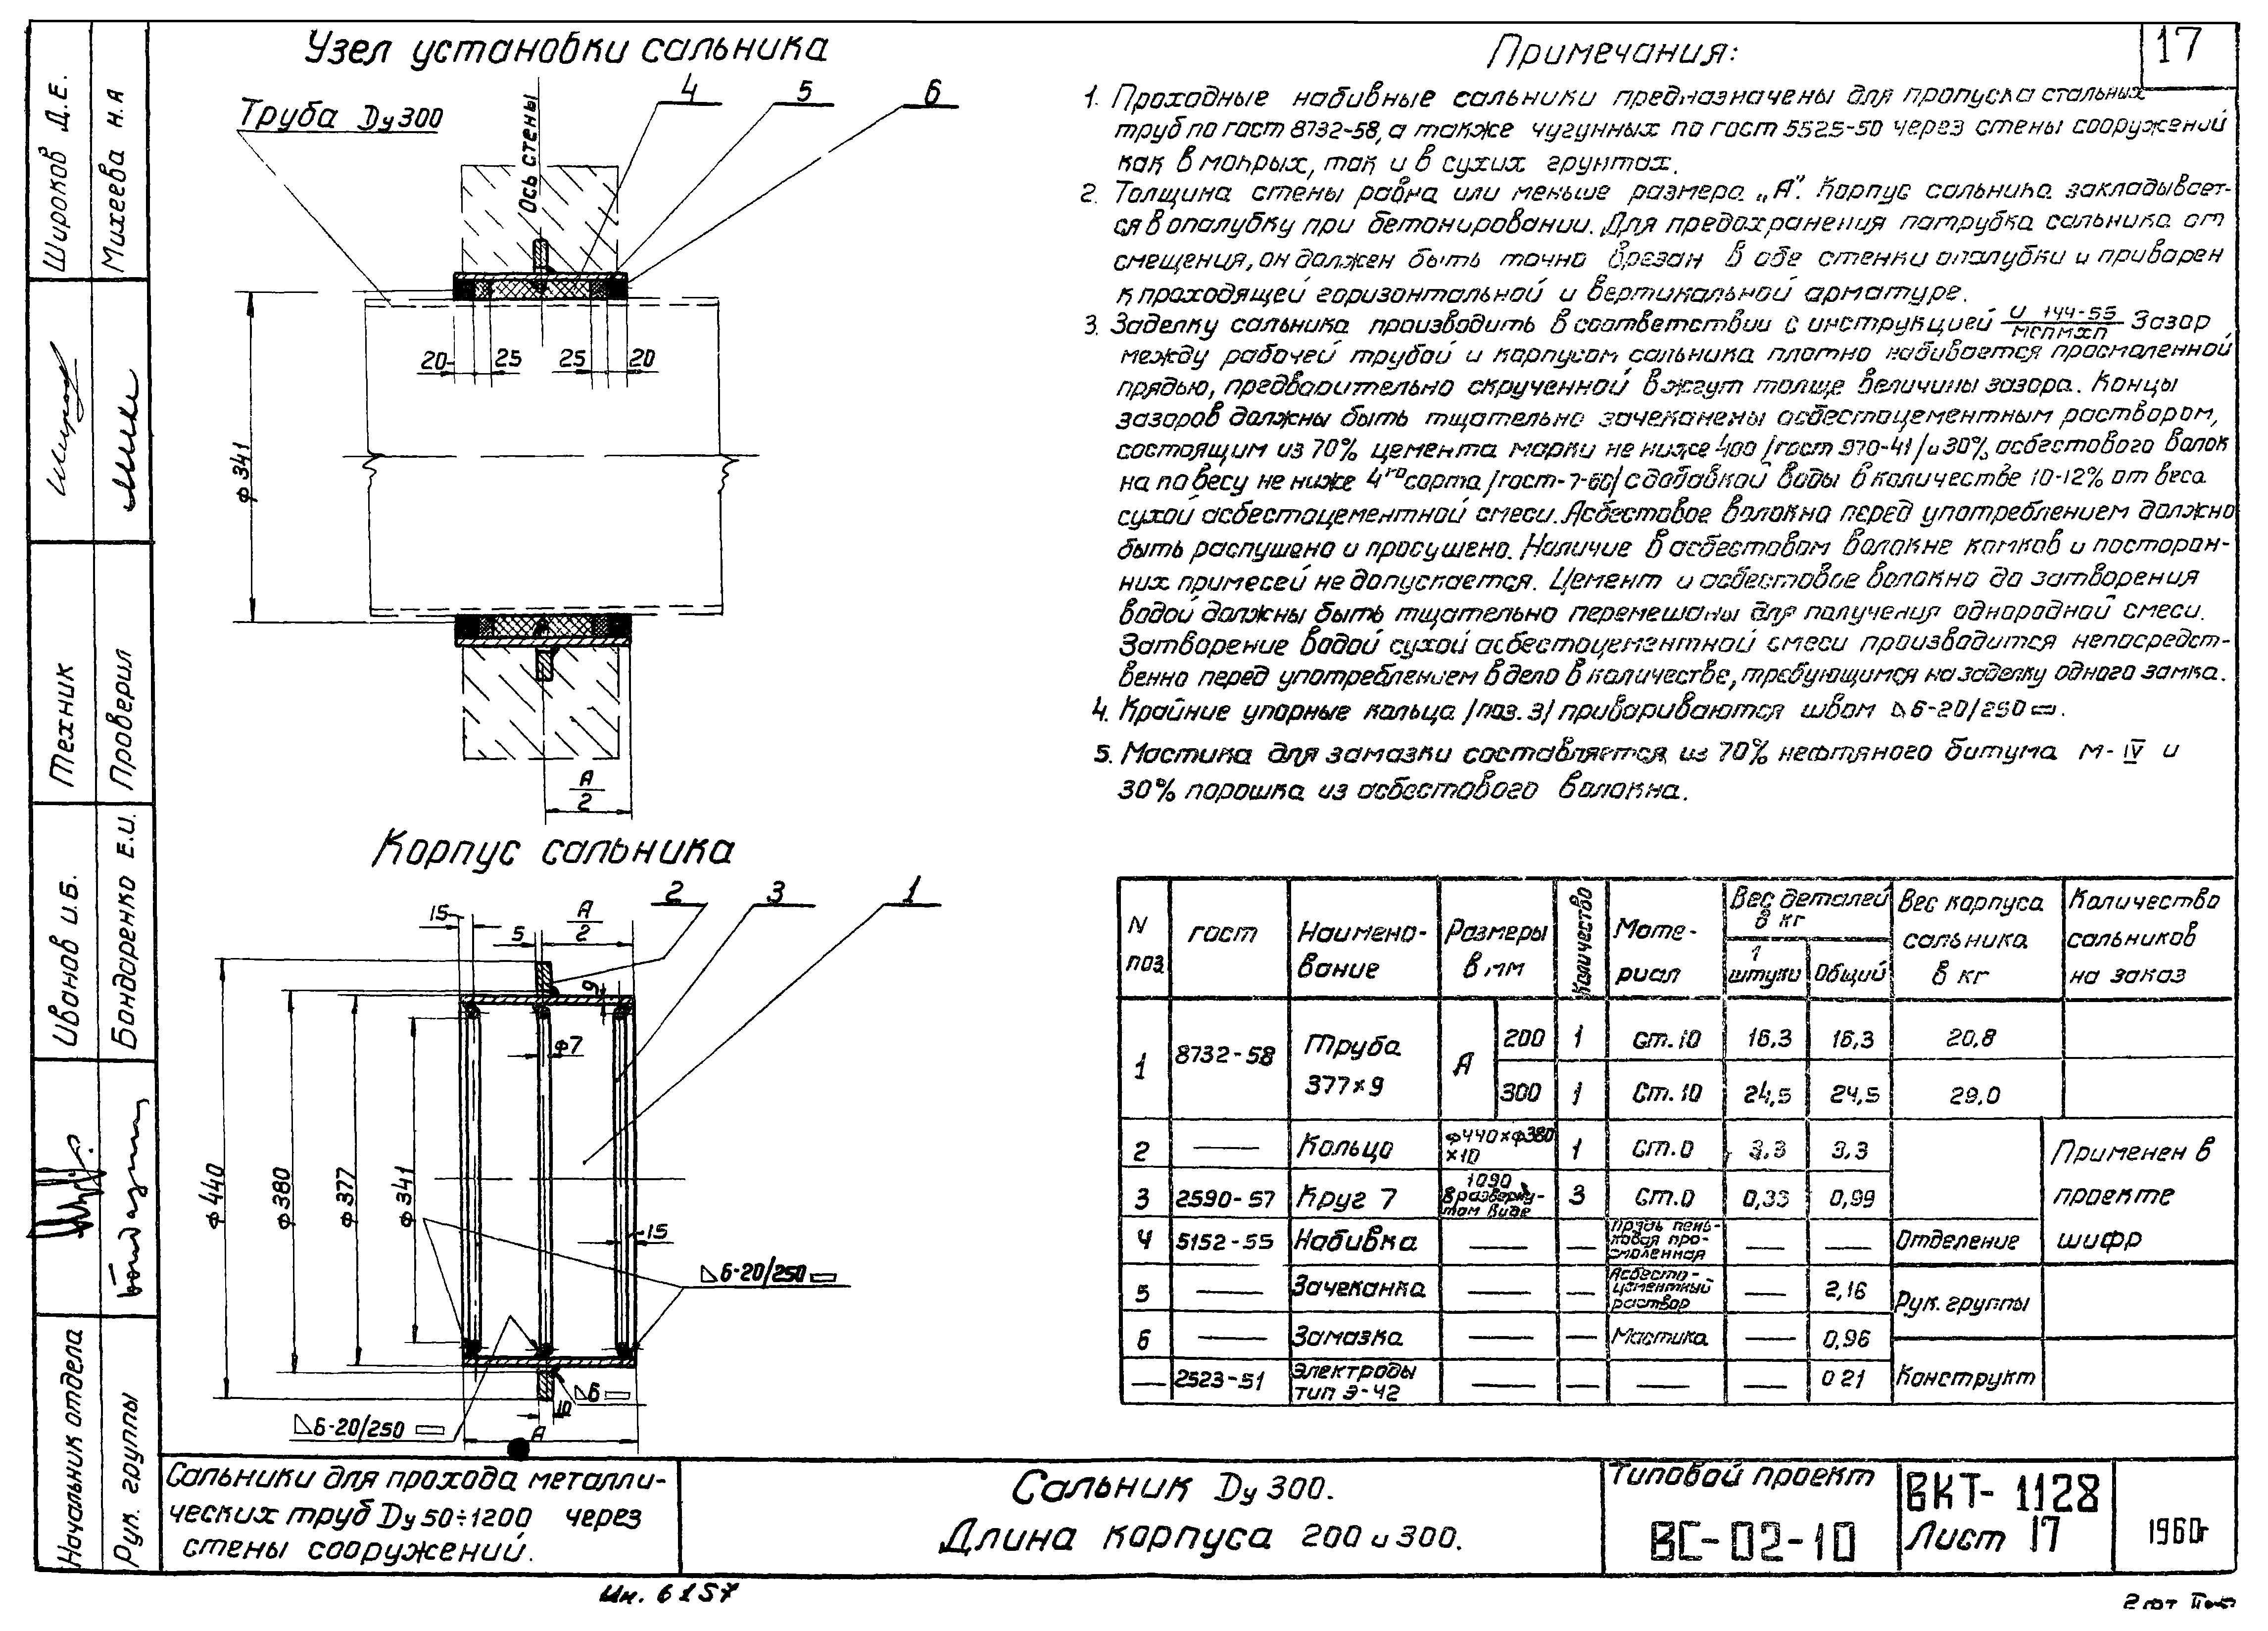 17
Узел установки сальника
Труба Dу 300
Ось стены
4
5
6
ф 341
20
25
25
20
А
2
Корпус сальника
2
3
1
15
5
А
2
9
ф7
ф 440
ф 380
ф 377
ф 341
15
6-20/250
6
10
6-20/250
А
Примечания:
1. Проходные набивные сальники предназначены для пропуска стальных
труб по гост 8732-58, а также чугунных по гост 5525-50 через стены сооружений
как в мокрых, так и в сухих грунтах.
2. Толщина стены равна или меньше размера „А". Корпус сальника закладывает-
ся в опалубку при бетонировании. Для предохранения патрубка сальника от
смещения, он должен быть точно врезан в обе стенки опалубки и приварен
к проходящей горизонтальной и вертикальной арматуре.
3. Заделку сальника производить в соответствии с инструкцией И 144-55 / МСПМХП Зазор
между рабочей трубой и корпусом сальника плотно набивается просмоленной
прядью, предварительно скрученной в жгут толще величины зазора. Концы
зазоров должны быть тщательно зачеканены асбестоцементным раствором,
состоящим из 70% цемента марки не ниже 400 /гост 970-41/ и 30% асбестового волок
на по весу не ниже 4го сорта /гост-7-60/ с добавкой воды в количестве 10-12% от веса
сухой асбестоцементной смеси. Асбестовое волокно перед употреблением должно
быть распушено и просушено. Наличие в асбестовом волокне комков и посторон-
них примесей не допускается. Цемент и асбестовое волокно до затворения
водой должны быть тщательно перемешаны для получения однородной смеси.
Затворение водой сухой асбестоцементной смеси производится непосредст-
венно перед употреблением в дело в количестве, требующимся на заделку одного замка.
4. Крайние упорные кольца /поз. 3/ привариваются швом 6-20/250.
5. Мастика для замазки составляется из 70% нефтяного битума М-IV и
30% порошка из асбестового волокна.
N поз. гост Наимено-вание Размеры в мм Количество Мате-риал Вес деталей в кг 1 штуки Общий Вес корпуса сальника в кг Количество сальников на заказ
1 8732-58 Труба 377×9 А 200 1 Ст.10 16,3 16,3 20,8
300 1 Ст.10 24,5 24,5 29,0
2 — Кольцо ф440×ф380 ×10 1 Ст.0 3,3 3,3
3 2590-57 Круг 7 1090 в разверну-том виде 3 Ст.0 0,33 0,99
4 5152-55 Набивка — — Прядь пень-ковая про-смоленная — —
5 — Зачеканка — — Асбесто-цементный раствор — 2,16
6 — Замазка — — Мастика — 0,96
— 2523-51 Электроды тип Э-42 — — — — 0 21
Применен в
проекте
шифр
Отделение
Рук. группы
Конструкт
Сальники для прохода металли-
ческих труб Dу 50÷1200 через
стены сооружений.
Сальник Dу 300.
Длина корпуса 200 и 300.
Типовой проект
ВС-02-10
ВКТ-1128
Лист 17
1960г
Ин. 6157
Широков Д.Е.
Михеева Н.А
Техник
Проверил
Иванов И.Б.
Бондаренко Е.И.
Начальник отдела
Рук. группы